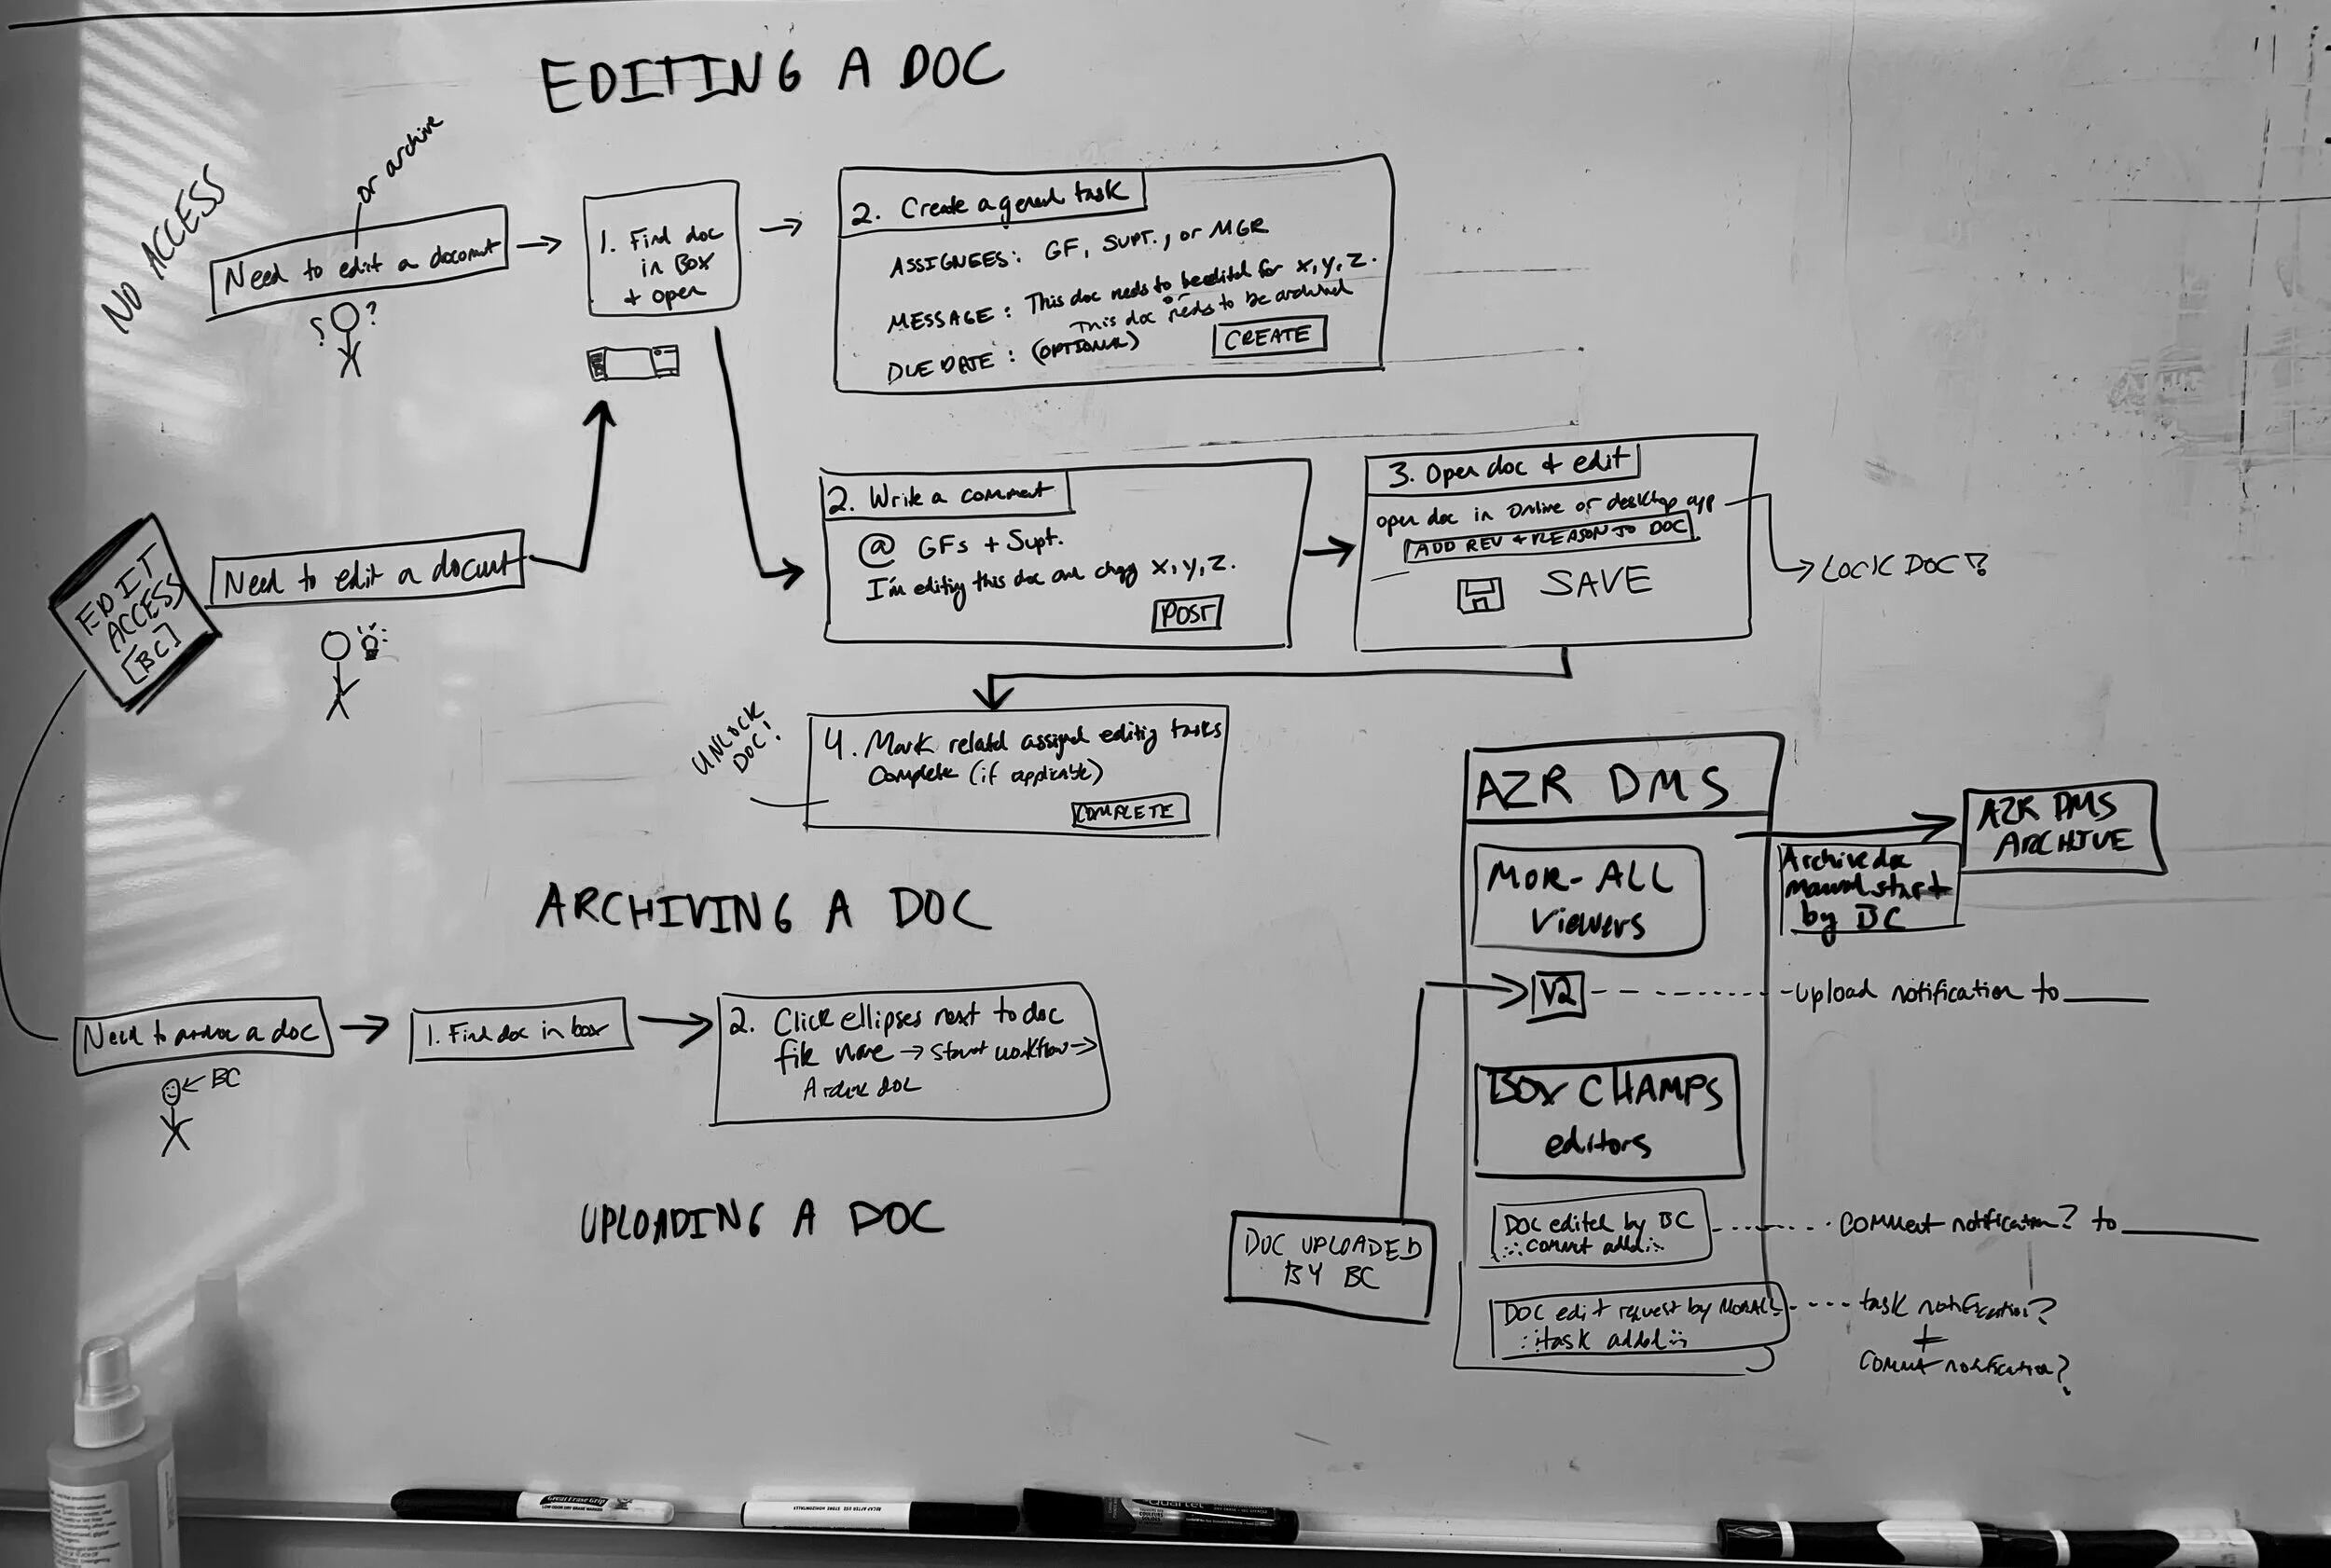 EDITING A DOC
NO ACCESS
or archive
Need to edit a document
? ?
1. Find doc
in Box
+ open
2. Create a general task
ASSIGNEES: GF, SUPT., or MGR
MESSAGE: This doc needs to be edited for X, Y, Z.
or
This doc needs to be archived
DUE DATE: (OPTIONAL)
CREATE
EDIT
ACCESS
[BC]
Need to edit a document
2. Write a comment
@ GFs + Supt.
I'm editing this doc and chngg X, Y, Z.
POST
3. Open doc + edit
open doc in online or desktop app
ADD REV + REASON TO DOC
SAVE
LOCK DOC?
UNLOCK
DOC!
4. Mark related assigned editing tasks
Complete (if applicable)
COMPLETE
ARCHIVING A DOC
Need to archive a doc
← BC
1. Find doc in box
2. Click ellipses next to doc
file name → start workflow →
Archive doc
UPLOADING A DOC
AZR DMS
MOR-ALL
Viewers
AZR DMS
ARCHIVE
Archive doc
manual start
by BC
V2
-upload notification to
BOX CHAMPS
editors
DOC UPLOADED
BY BC
DOC edited by BC
∴ comment added ∴
comment notification? to
DOC edit request by MORALL
∴ task added ∴
task notification?
+
comment notification?
Great Erase Grip
RECAP AFTER USE STORE HORIZONTALLY
Quartet